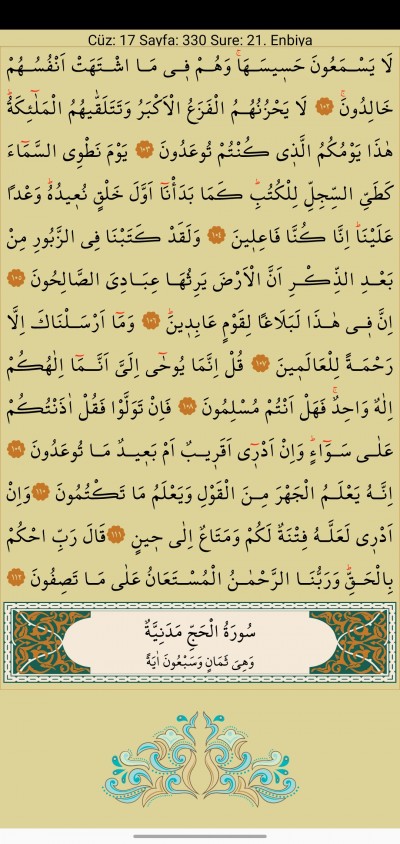 Cüz: 17 Sayfa: 330 Sure: 21. Enbiya
لَا يَسْمَعُونَ حَسٖيسَهَاۚ وَهُمْ فٖى مَا اشْتَهَتْ اَنْفُسُهُمْ
خَالِدُونَۚ ﴿١٠٢﴾ لَا يَحْزُنُهُمُ الْفَزَعُ الْاَكْبَرُ وَتَتَلَقّٰيهُمُ الْمَلٰٓئِكَةُؕ
هٰذَا يَوْمُكُمُ الَّذٖى كُنْتُمْ تُوعَدُونَ ﴿١٠٣﴾ يَوْمَ نَطْوِى السَّمَٓاءَ
كَطَىِّ السِّجِلِّ لِلْكُتُبِؕ كَمَا بَدَأْنَٓا اَوَّلَ خَلْقٍ نُعٖيدُهُؕ وَعْدًا
عَلَيْنَاؕ اِنَّا كُنَّا فَاعِلٖينَ ﴿١٠٤﴾ وَلَقَدْ كَتَبْنَا فِى الزَّبُورِ مِنْ
بَعْدِ الذِّكْرِ اَنَّ الْاَرْضَ يَرِثُهَا عِبَادِىَ الصَّالِحُونَ ﴿١٠٥﴾
اِنَّ فٖى هٰذَا لَبَلَاغًا لِقَوْمٍ عَابِدٖينَؕ ﴿١٠٦﴾ وَمَٓا اَرْسَلْنَاكَ اِلَّا
رَحْمَةً لِلْعَالَمٖينَ ﴿١٠٧﴾ قُلْ اِنَّمَا يُوحٰٓى اِلَىَّ اَنَّمَٓا اِلٰهُكُمْ
اِلٰهٌ وَاحِدٌۚ فَهَلْ اَنْتُمْ مُسْلِمُونَ ﴿١٠٨﴾ فَاِنْ تَوَلَّوْا فَقُلْ اٰذَنْتُكُمْ
عَلٰى سَوَٓاءٍؕ وَاِنْ اَدْرٖٓى اَقَرٖيبٌ اَمْ بَعٖيدٌ مَا تُوعَدُونَ ﴿١٠٩﴾
اِنَّهُ يَعْلَمُ الْجَهْرَ مِنَ الْقَوْلِ وَيَعْلَمُ مَا تَكْتُمُونَ ﴿١١٠﴾ وَاِنْ
اَدْرٖى لَعَلَّهُ فِتْنَةٌ لَكُمْ وَمَتَاعٌ اِلٰى حٖينٍ ﴿١١١﴾ قَالَ رَبِّ احْكُمْ
بِالْحَقِّؕ وَرَبُّنَا الرَّحْمٰنُ الْمُسْتَعَانُ عَلٰى مَا تَصِفُونَ ﴿١١٢﴾
سُورَةُ الْحَجِّ مَدَنِيَّةٌ
وَهِىَ ثَمَانٍ وَسَبْعُونَ اٰيَةً